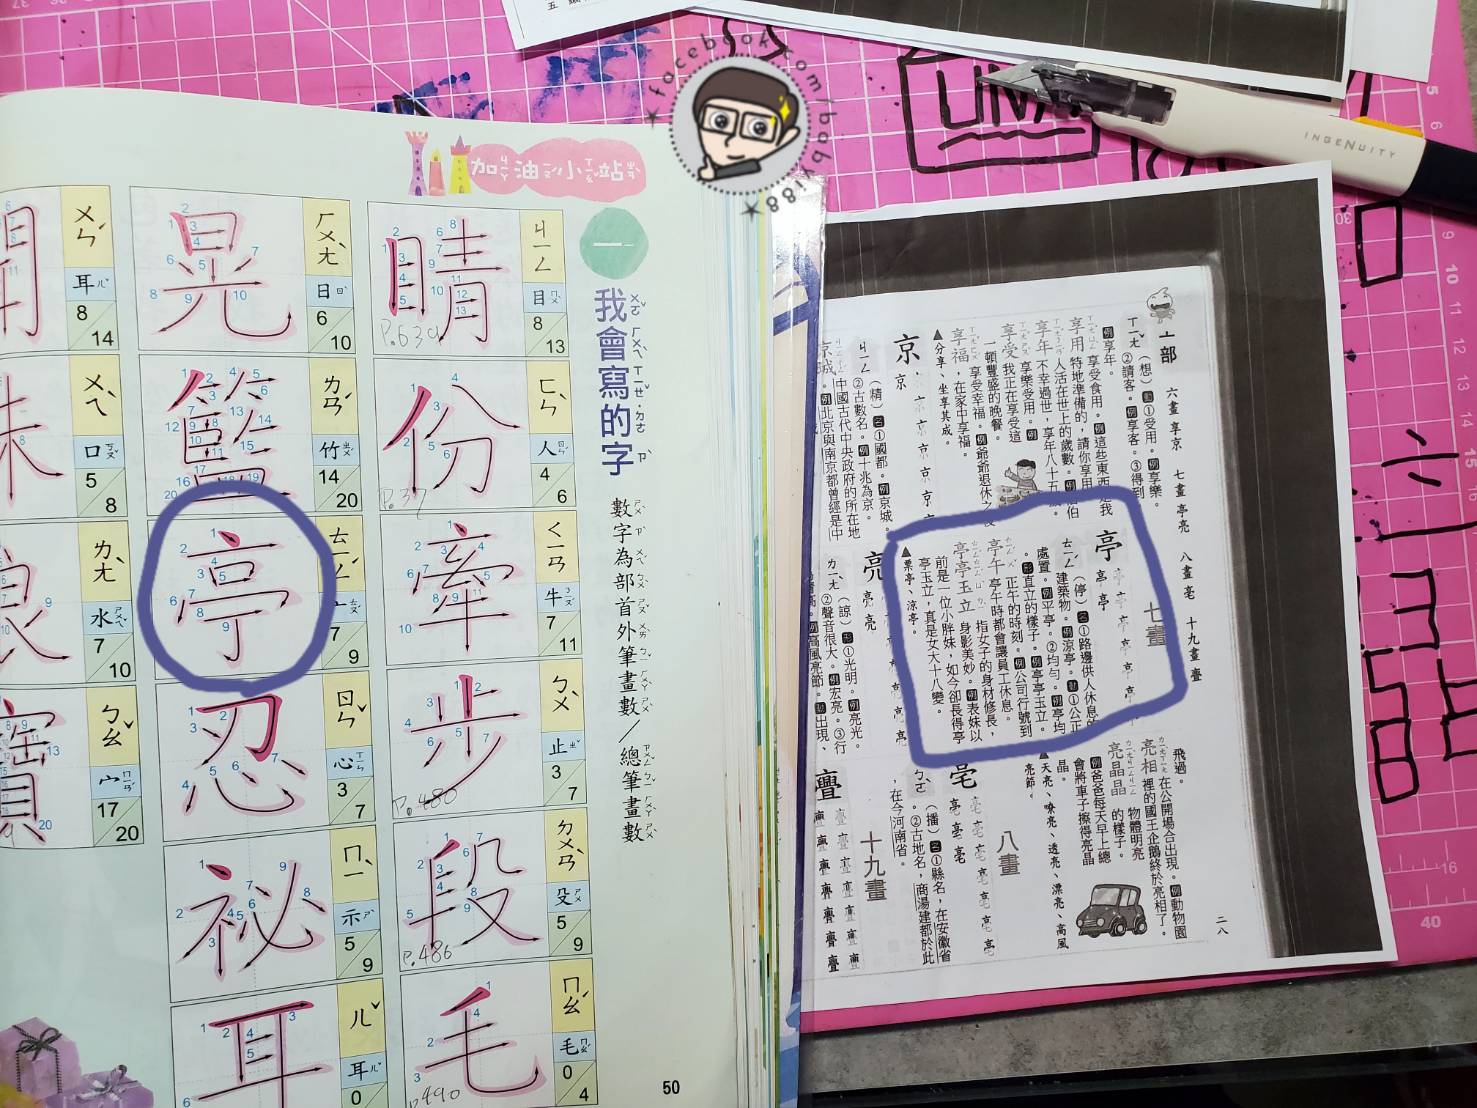 facebook.com/bobx188
INGENUITY
加油小站
一
我會寫的字
數字為部首外筆畫數／總筆畫數
睛
ㄐㄧㄥ
目
8
13
P.639
份
ㄈㄣˋ
人
4
6
P.37
牽
ㄑㄧㄢ
牛
7
11
步
ㄅㄨˋ
止
3
7
P.480
段
ㄉㄨㄢˋ
殳
5
9
P.486
毛
ㄇㄠˊ
毛
0
4
P.490
晃
ㄏㄨㄤˋ
日
6
10
籃
ㄌㄢˊ
竹
14
20
亭
ㄊㄧㄥˊ
亠
7
9
忍
ㄖㄣˇ
心
3
7
祕
ㄇㄧˋ
示
5
9
耳
ㄦˇ
耳
0
ㄨㄣˊ
耳
8
14
ㄨㄟˋ
口
5
8
ㄌㄤˋ
水
7
10
寶
ㄅㄠˇ
宀
17
20
50
亠部 六畫 享京 七畫 亭亮 八畫 亳 十九畫 亹
ㄒㄧㄤˇ（想）動①受用。例享樂。
②請客。例享客。③得到。
例享年。
享用 享受食用。例這些東西是我
特地準備的，請你享用。
享年 人活在世上的歲數。例伯
不幸過世，享年八十五歲。
享受 享樂受用。例我正在享受這
一頓豐盛的晚餐。
享福 享受幸福。例爺爺退休之後
，在家中享福。
▲分享、坐享其成。
京
ㄐㄧㄥ（精）名①國都。例京城。
②古數名。例十兆為京。
京城 中國古代中央政府的所在地
。例北京與南京都曾經是中
七畫
亭
ㄊㄧㄥˊ（停）名①路邊供人休息的
建築物。例涼亭。動①公正
處置。例平亭。②均勻。例亭均
。形直立的樣子。例亭亭玉立。
亭午 正午的時刻。例公司行號到
亭午時都會讓員工休息。
亭亭玉立 指女子的身材修長，
身影美妙。例表妹以
前是一位小胖妹，如今卻長得亭
亭玉立，真是女大十八變。
▲票亭、涼亭。
亮
ㄌㄧㄤˋ（諒）形①光明。例亮光。
②聲音很大。例宏亮。③行
高。例高風亮節。動出現、
飛過。
亮相 在公開場合出現。例動物園
裡的國王企鵝終於亮相了。
亮晶晶 物體明亮的樣子。
例爸爸每天早上總
會將車子擦得亮晶
晶。
▲天亮、嘹亮、透亮、漂亮、高風
亮節。
八畫
亳
ㄅㄛˊ（播）名①縣名，在安徽省
。②古地名，商湯建都於此
，在今河南省。
十九畫
亹
二八